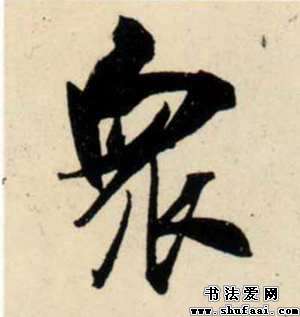 眾
书法爱网
www.shufaai.com